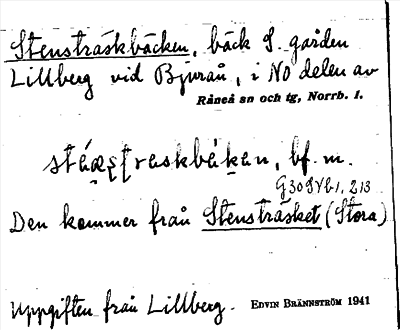 Stensträskbäcken, bäck S. gården
Lillberg vid Bjurån, i NO delen av
Råneå sn och tg, Norrb. l.
bf. m.
G30SVb1, 213
Den kommer från Stensträsket (Stora)
Uppgiften från Lillberg. EDVIN BRÄNNSTRÖM 1941